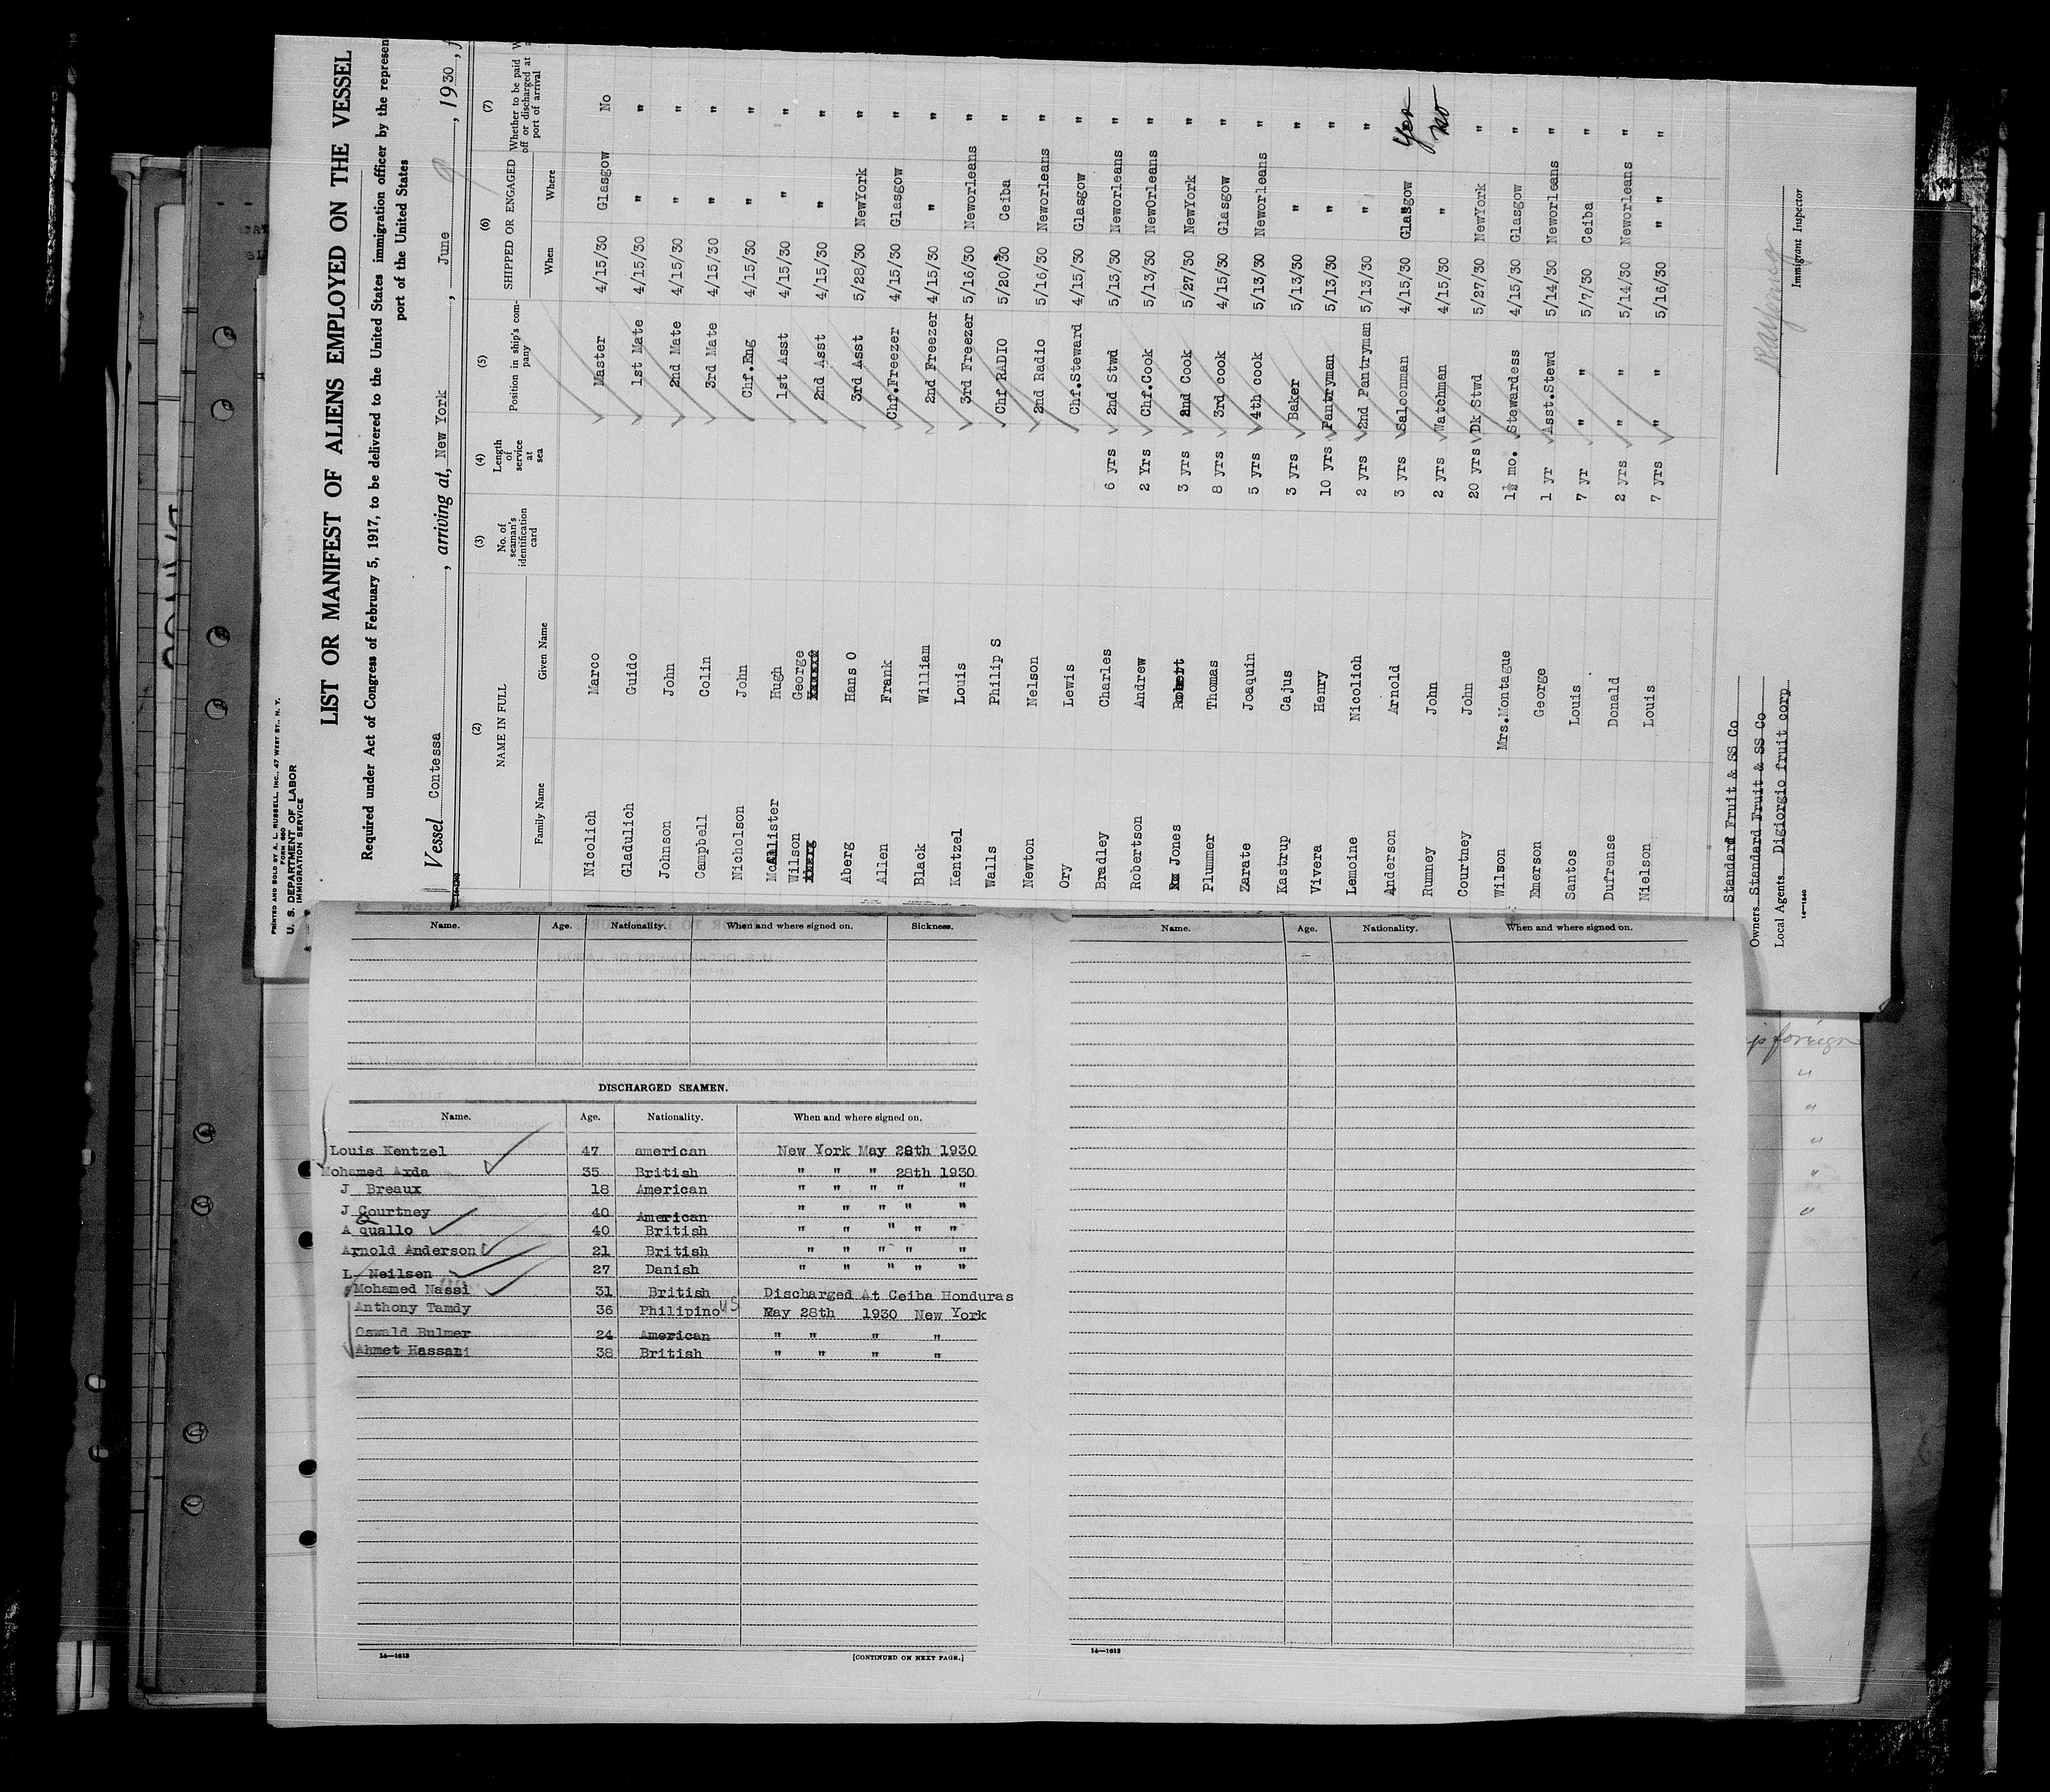 PRINTED AND SOLD BY A. L. RUSSELL, INC., 47 WEST ST., N. Y.
FORM 680
U. S. DEPARTMENT OF LABOR
IMMIGRATION SERVICE
LIST OR MANIFEST OF ALIENS EMPLOYED ON THE VESSEL
Required under Act of Congress of February 5, 1917, to be delivered to the United States immigration officer by the represen
port of the United States
Vessel Contessa , arriving at, New York , June 9 , 1930, f
(2) (3) (4) (5) (6) (7)
NAME IN FULL No. of seaman's identification card Length of service at sea Position in ship's company SHIPPED OR ENGAGED Whether to be paid off or discharged at port of arrival
Family Name Given Name When Where
Nicolich Marco Master 4/15/30 Glasgow No
Gladulich Guido 1st Mate 4/15/30 " "
Johnson John 2nd Mate 4/15/30 " "
Campbell Colin 3rd Mate 4/15/30 " "
Nicholson John Chf.Eng 4/15/30 " "
McAllister Hugh 1st Asst 4/15/30 " "
Wilson George 2nd Asst 4/15/30 " "
Aberg Hans O 3rd Asst 5/28/30 NewYork "
Allen Frank Chf.Freezer 4/15/30 Glasgow "
Black William 2nd Freezer 4/15/30 " "
Kentzel Louis 3rd Freezer 5/16/30 Neworleans "
Walls Philip S Chf RADIO 5/20/30 Ceiba "
Newton Nelson 2nd Radio 5/16/30 Neworleans "
Ory Lewis Chf.Steward 4/15/30 Glasgow "
Bradley Charles 6 yrs 2nd Stwd 5/13/30 Neworleans "
Robertson Andrew 2 Yrs Chf.Cook 5/13/30 NewOrleans "
Jones Robert 3 yrs 2nd Cook 5/27/30 NewYork "
Plummer Thomas 8 yrs 3rd cook 4/15/30 Glasgow "
Zarate Joaquin 5 yrs 4th cook 5/13/30 Neworleans "
Kastrup Cajus 3 yrs Baker 5/13/30 " "
Vivera Henry 10 yrs Pantryman 5/13/30 " "
Lemoine Nicolich 2 yrs 2nd Pantryman 5/13/30 " "
Anderson Arnold 3 yrs Saloonman 4/15/30 Glasgow Yes
Rumney John 2 yrs Watchman 4/15/30 " No
Courtney John 20 yrs Dk Stwd 5/27/30 NewYork "
Wilson Mrs.Montague 1½ mo. Stewardess 4/15/30 Glasgow "
Emerson George 1 yr Asst.Stewd 5/14/30 Neworleans "
Santos Louis 7 yr " " 5/7/30 Ceiba "
Dufrense Donald 2 yrs " " 5/14/30 Neworleans "
Nielson Louis 7 yrs " " 5/16/30 " " "
Standard Fruit & SS Co
Owners Standard Fruit & SS Co
Local Agents Digiorgio fruit corp
14—1240
Immigrant Inspector
Name. Age. Nationality. When and where signed on. Sickness.
DISCHARGED SEAMEN.
Name. Age. Nationality. When and where signed on.
Louis Kentzel 47 american New York May 28th 1930
Mohamed Axda 35 British " " " 28th 1930
J Breaux 18 American " " " " "
J Courtney 40 American " " " " "
A Quallo 40 British " " " " "
Arnold Anderson 21 British " " " " "
L Neilsen 27 Danish " " " " "
Mohamed Nassi 31 British Discharged At Ceiba Honduras
Anthony Tamdy 36 Philipino US May 28th 1930 New York
Oswald Bulmer 24 American " " " "
Ahmet Hassani 38 British " " " "
14—1613
[CONTINUED ON NEXT PAGE.]
Name. Age. Nationality. When and where signed on.
14—1613
foreign
"
"
"
"
"